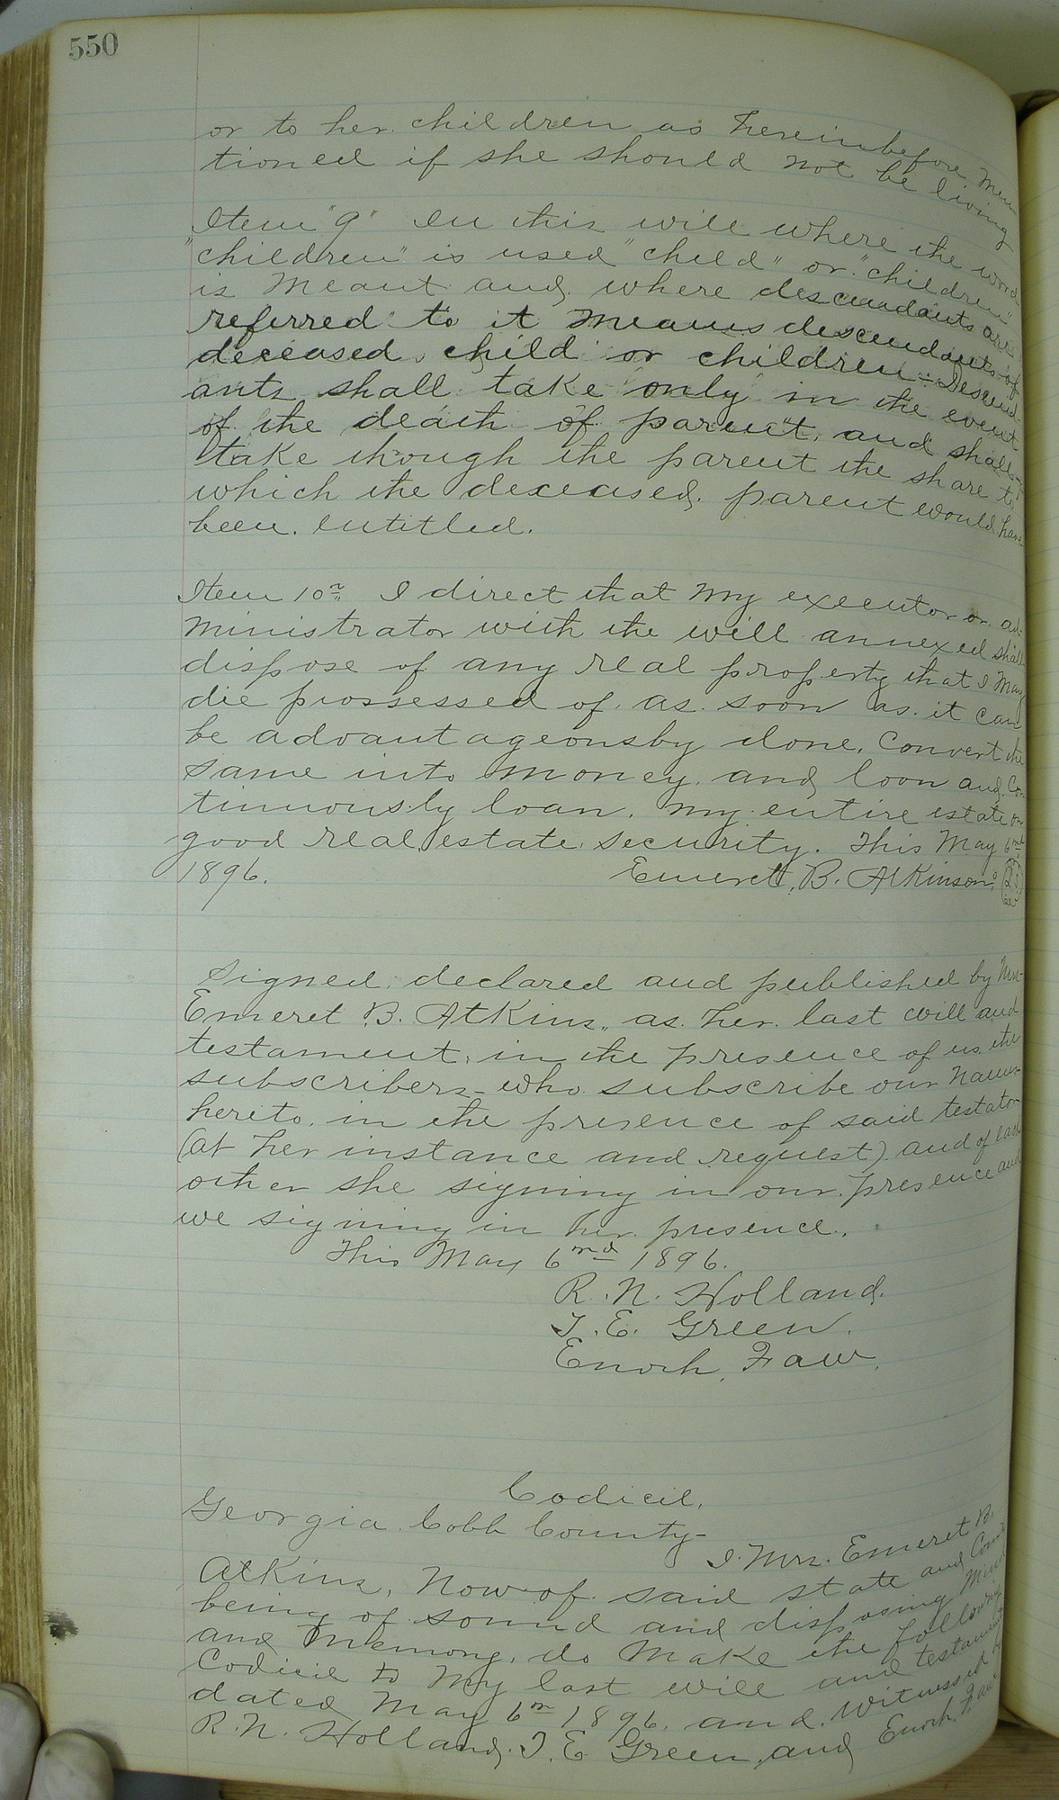 550
or to her children as hereinbefore men
tioned if she should not be living
Item "9" In this will where the word
"children" is used "child" or "children"
is meant and where descendants are
referred to it means descendants of
deceased child or children - Descend
ants shall take only in the event
of the death of parent, and shall
take though the parent the share to
which the deceased parent would have
been entitled.
Item 10th I direct that my executor or ad-
ministrator with the will annexed shall
dispose of any real property that I may
die possessed of as soon as it can
be advantageonsby done, convert the
same into money and loon and con
tinuously loan my entire estate on
good real estate security. This May 6nd
1896. Emeret B. Atkinson
Signed declared and published by Mrs
Emeret B. Atkins, as her last will and
testament, in the presence of us the
subscribers who subscribe our names
hereto in the presence of said testator
(at her instance and request) and of each
other she signing in our presence and
we signing in her presence.
This May 6nd 1896.
R. N. Holland.
T. E. Green.
Enoch Faw.
Codicil.
Georgia Cobb County-
I Mrs. Emeret B.
Atkins, Now of said state and County
being of sound and disposing mind
and memory, do make the following
Codicil to my last will and testament
dated May 6th 1896. and witnessed by
R. N. Holland, T. E Green, and Enoch Faw